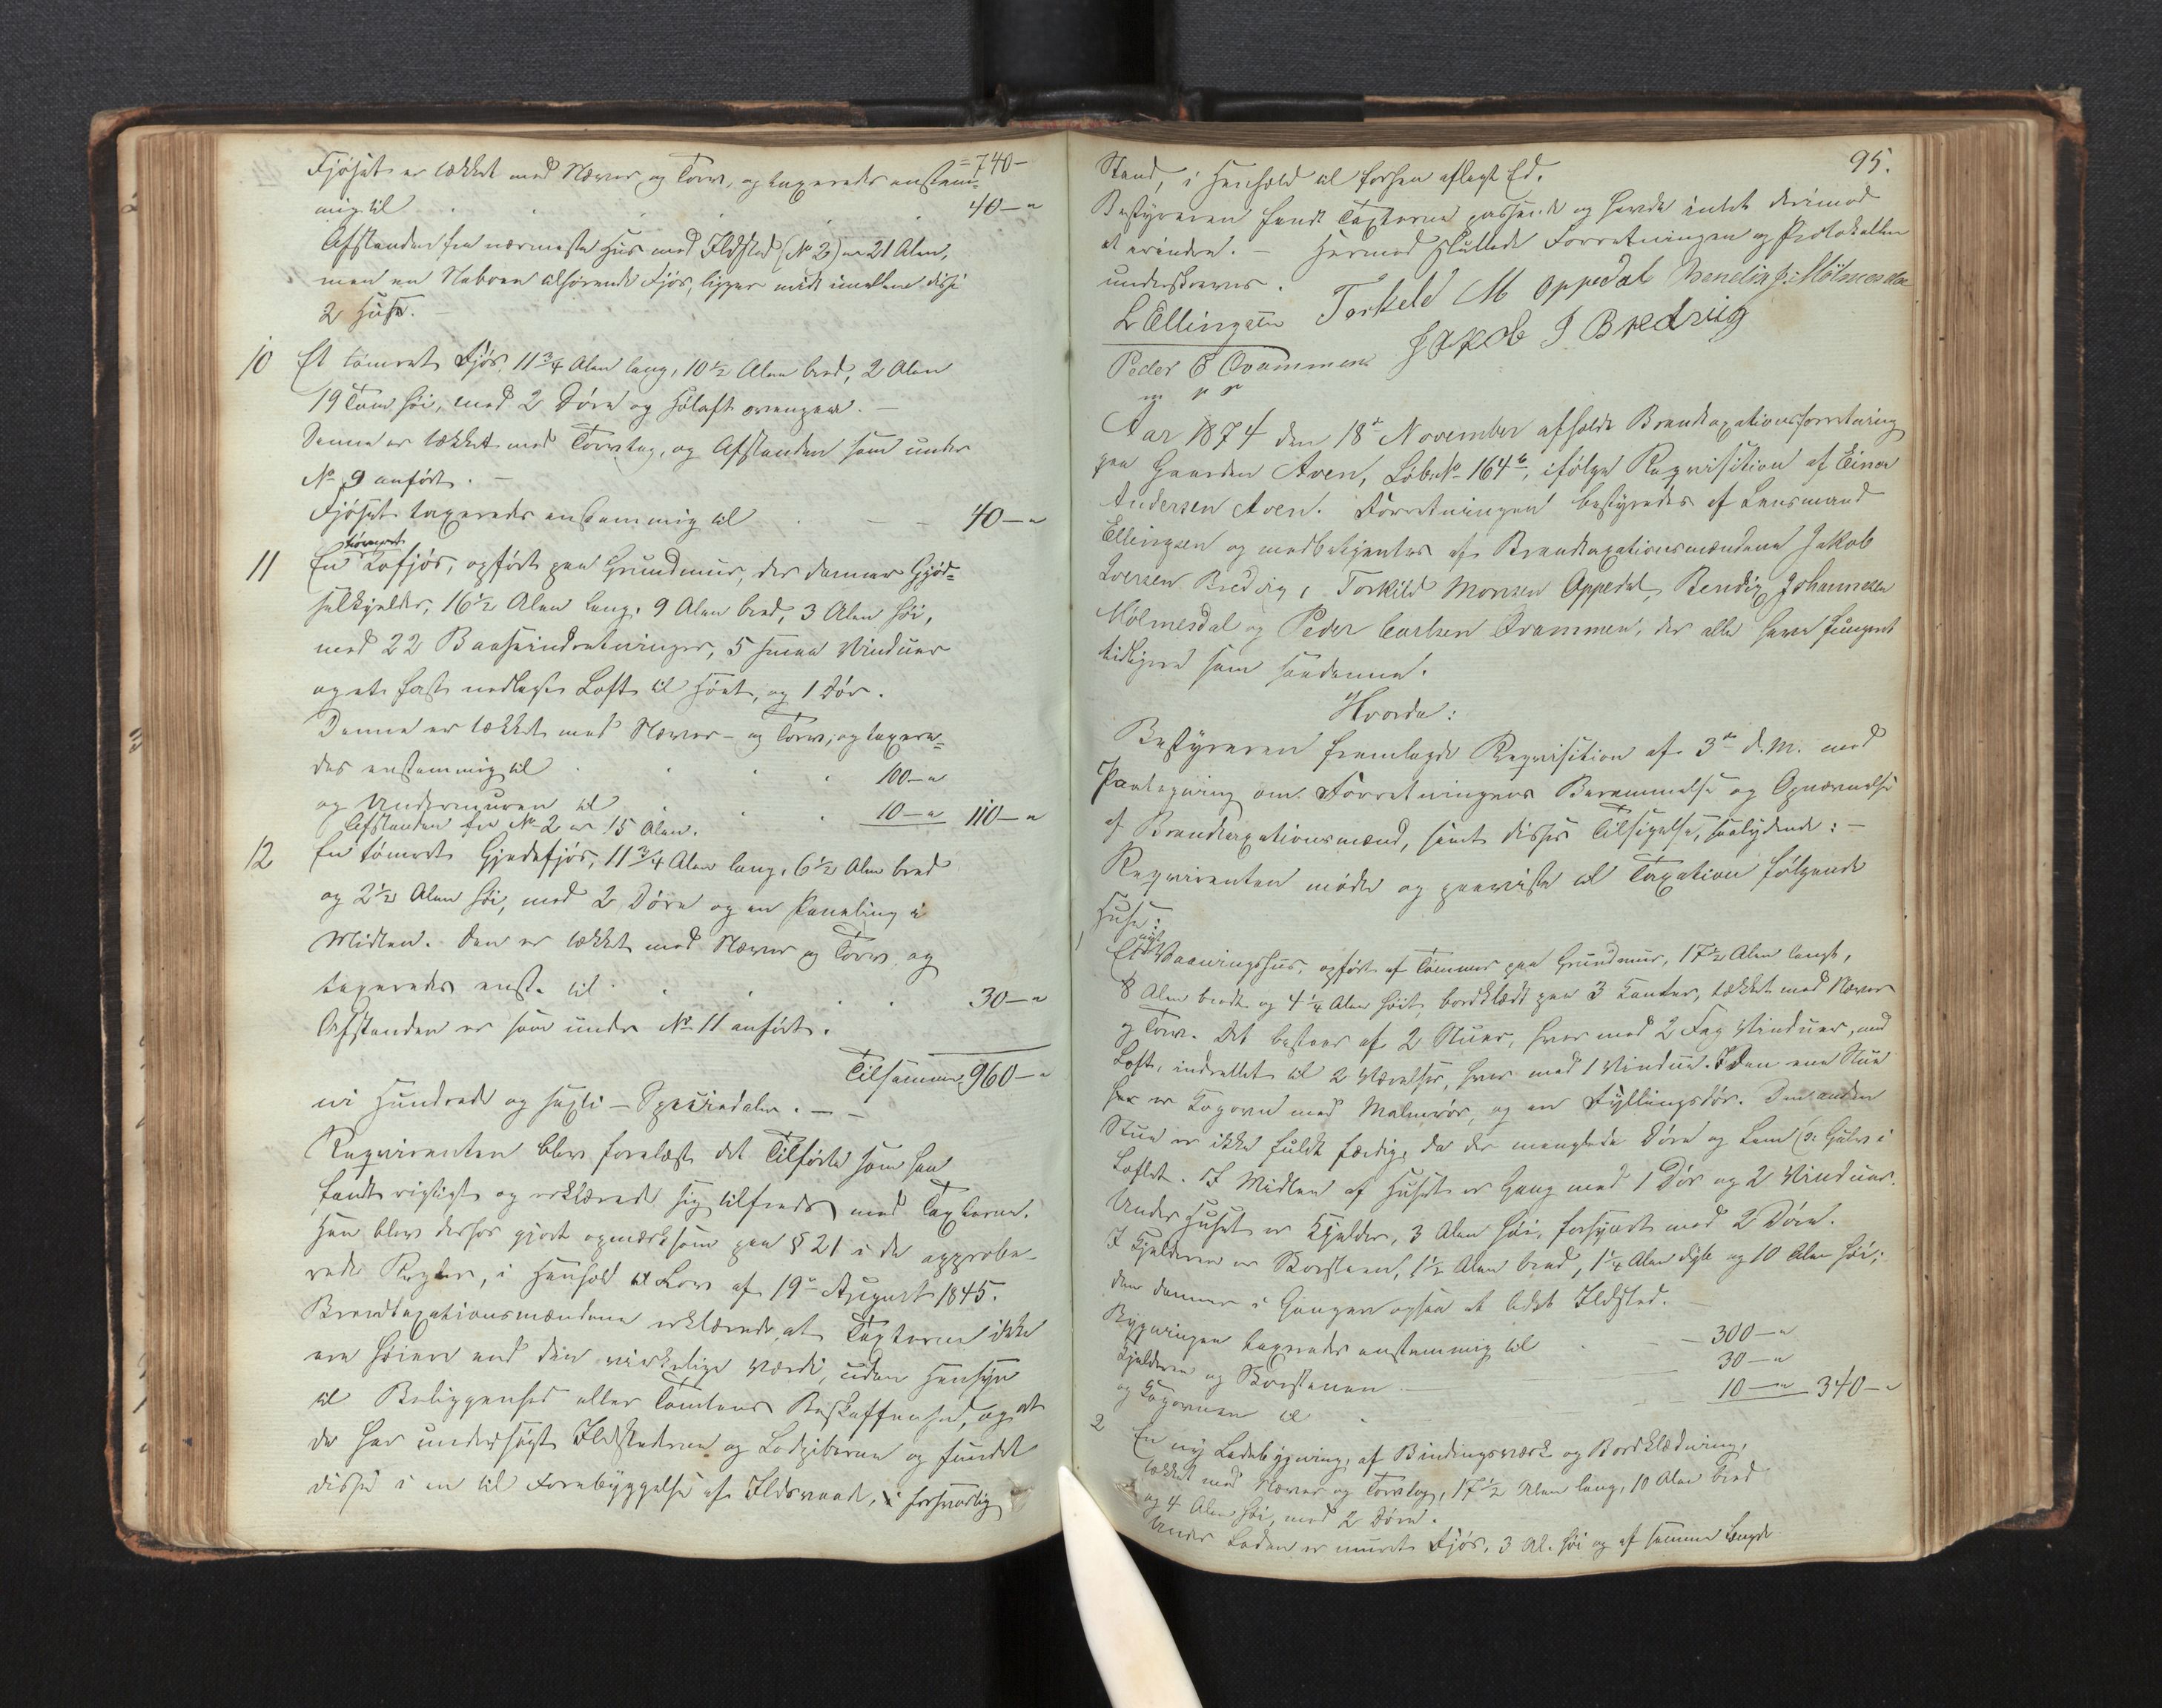 = 740 –
Fjøset er tækket med Næver og Torv, og taxeredes enstem=
mig til . . . . . 40 – "
Afstanden fra nærmeste Huus med Ildsted (No 2) er 21 Alen,
men en Naboen tilhørende Fjøs, ligger midt imellem disse
2 Huse. –
10 Et tømret Fjøs, 11 3/4 Alen lang, 10 1/2 Alen bred, 2 Alen
19 Tom høi, med 2 Døre og Høloft ovenpaa. –
Denne er tækket med Torvtag, og Afstanden som under
No 9 anført. –
Fjøset taxeredes enstemmig til . – – 40 – "
11 En tømret Kofjøs, opført paa Grundmuur, der danner Gjød=
selkjelder, 16 1/2 Alen lang, 9 Alen bred, 3 Alen høi,
med 22 Baaseindretninger, 5 smaa Vinduer
og et fast nedlagt Loft til Høet, og 1 Dør.
Denne er tækket med Næver- og Torv, og taxere=
des enstemmig til . . . . 100 – "
og Undermuren til . . . 10 – " 110 – "
Afstanden fra No 2 er 15 Alen.
12 En tømret Gjedefjøs, 11 3/4 Alen lang, 6 1/2 Alen bred
og 2 1/2 Alen høi, med 2 Døre og en Paneling i
Midten. Den er tækket med Næver og Torv og
taxeredes enst. til . . . . 30 – "
Afstanden er som under No 11 anført.
Tilsammen 960 – "
ni Hundrede og sexti – Speciedaler. – –
Reqvirenten blev forelæst det Tilførte som han
fandt rigtigt og erklærede sig tilfreds med Taxterne.
Han blev derhos gjort opmærksom paa § 21 i de approbe-
rede Regler, i Henhold til Lov af 19de August 1845.
Brandtaxationsmændene erklærede, at Taxterne ikke
ere høiere end den virkelige Værdi, uden Hensyn
til Beliggenhed eller Tomtens Beskaffenhed, og at
de har undersøgt Ildstederne og Lodpiberne og fundet
disse i en til Forebyggelse af Ildsvaade, i forsvarlig
95.
Stand, i Henhold til forhen aflagt Ed.
Bestyreren fandt Taxterne passende og havde intet derimod
at erindre. – Hermed sluttede Forretningen og Protokollen
underskreves.
L Ellingsen Torkeld M Oppedal Bendix J: Mölmesdal
Peder C Qvammen Jakob I Bredvig
m p P
Aar 1874 den 18de November afholdt Brandtaxationsforretning
paa Gaarden Aven, Løbe No 164 b, ifølge Reqvisition af Einar
Andersen Aven. Forretningen bestyredes af Lensmand
Ellingsen og medbetjentes af Brandtaxationsmændene Jakob
Iversen Bredvig, Torkild Monsen Oppedal, Bendix Johannesen
Mölmesdal og Peder Carlsen Qvammen, der alle have fungeret
tidligere som saadanne.
Hvorda:
Bestyreren fremlagde Reqvisition af 3die d. M. med
Paategning om Forretningens Berammelse og Opnævnelse
af Brandtaxationsmænd, samt disses Tilsigelse, saalydende: –
Reqvirenten mødte og paaviste til Taxation følgende
Huse:
1 Et nyt Vaaningshus, opført af Tømmer paa Grundmuur, 17 1/2 Alen langt,
8 Alen bredt og 4 1/4 Alen høit, bordklædt paa 3 Kanter, tækket med Næver
og Torv. Det bestaar af 2 Stuer, hver med 2 Fag Vinduer, med
Loft, indrettet til 2 Værelser, hver med 1 Vindue. I den ene Stue
her er Kogovn med Malmrør, og en Fyllingsdør. Den anden
Stue er ikke fuldt færdig, da der manglede Døre og Lem (o: Gulv i
Loftet. I Midten af Huset er Gang med 1 Dør og 2 Vinduer.
Under Huset er Kjelder, 3 Alen høi, forsynet med 2 Døre.
I Kjelderen er Skorsteen, 1 1/2 Alen bred, 1 1/4 Alen dyb og 10 Alen høi;
den danner i Gangen ogsaa et lidet Ildsted. –
Bygningen taxeredes enstemmig til . – – 300 – "
Kjelderen og Skorstenen – – 30 – "
og Kogovnen til . – – 10 – " 340 – "
2 En ny Ladebygning, af Bindingsværk og Bordklædning,
tækket med Næver og Torvtag, 17 1/2 Alen lang, 10 Alen bred
og 4 Alen høi, med 2 Døre.
Under Laden er muret Fjøs, 3 Al. høi og af samme Længde